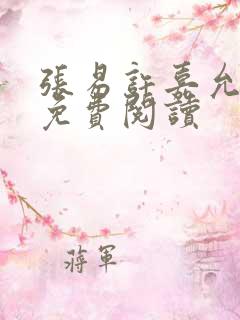 張易許嘉允
免費閱讀
蔣軍